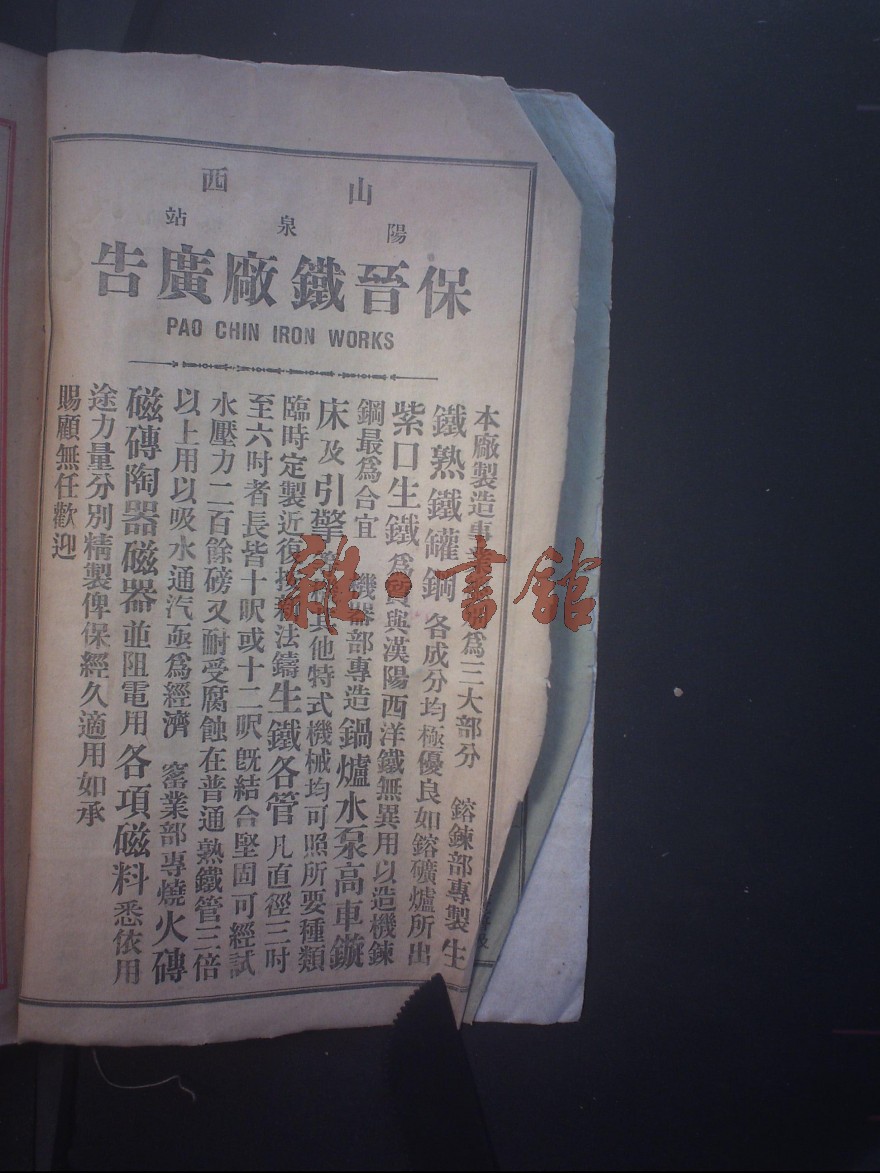 山西
陽泉站
保晉鐵廠廣告
PAO CHIN IRON WORKS
本廠製造事為三大部分 鎔鍊部專製生
鐵熟鐵罐鋼各成分均極優良如鎔礦爐所出
紫口生鐵為質與漢陽西洋鐵無異用以造機鍊
鋼最為合宜 機器部專造鍋爐水泵高車鏇
床及引擎其他特式機械均可照所要種類
臨時定製近復按新法鑄生鐵各管凡直徑三吋
至六吋者長皆十呎或十二呎既結合堅固可經試
水壓力二百餘磅又耐受腐蝕在普通熟鐵管三倍
以上用以吸水通汽亟為經濟 窰業部專燒火磚
磁磚陶器磁器並阻電用各項磁料悉依用
途力量分別精製俾保經久適用如承
賜顧無任歡迎
雜·書館